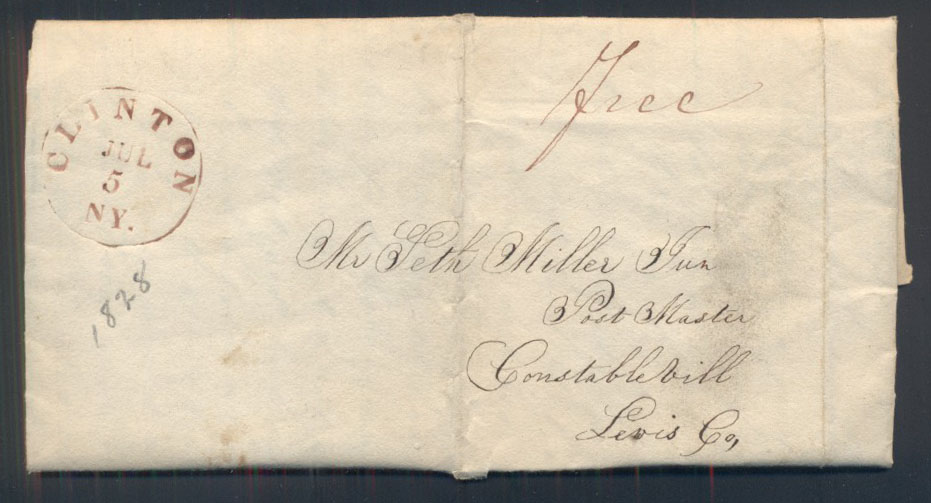 Free
CLINTON
JUL
5
NY.
1828
Mr Seth Miller Jun
Post Master
Constablevill
Lewis Co,